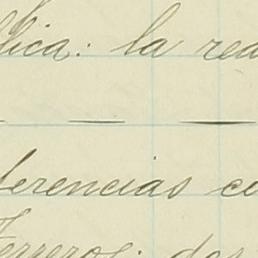 lica: la rea
ferencias co
Ferreros: dos